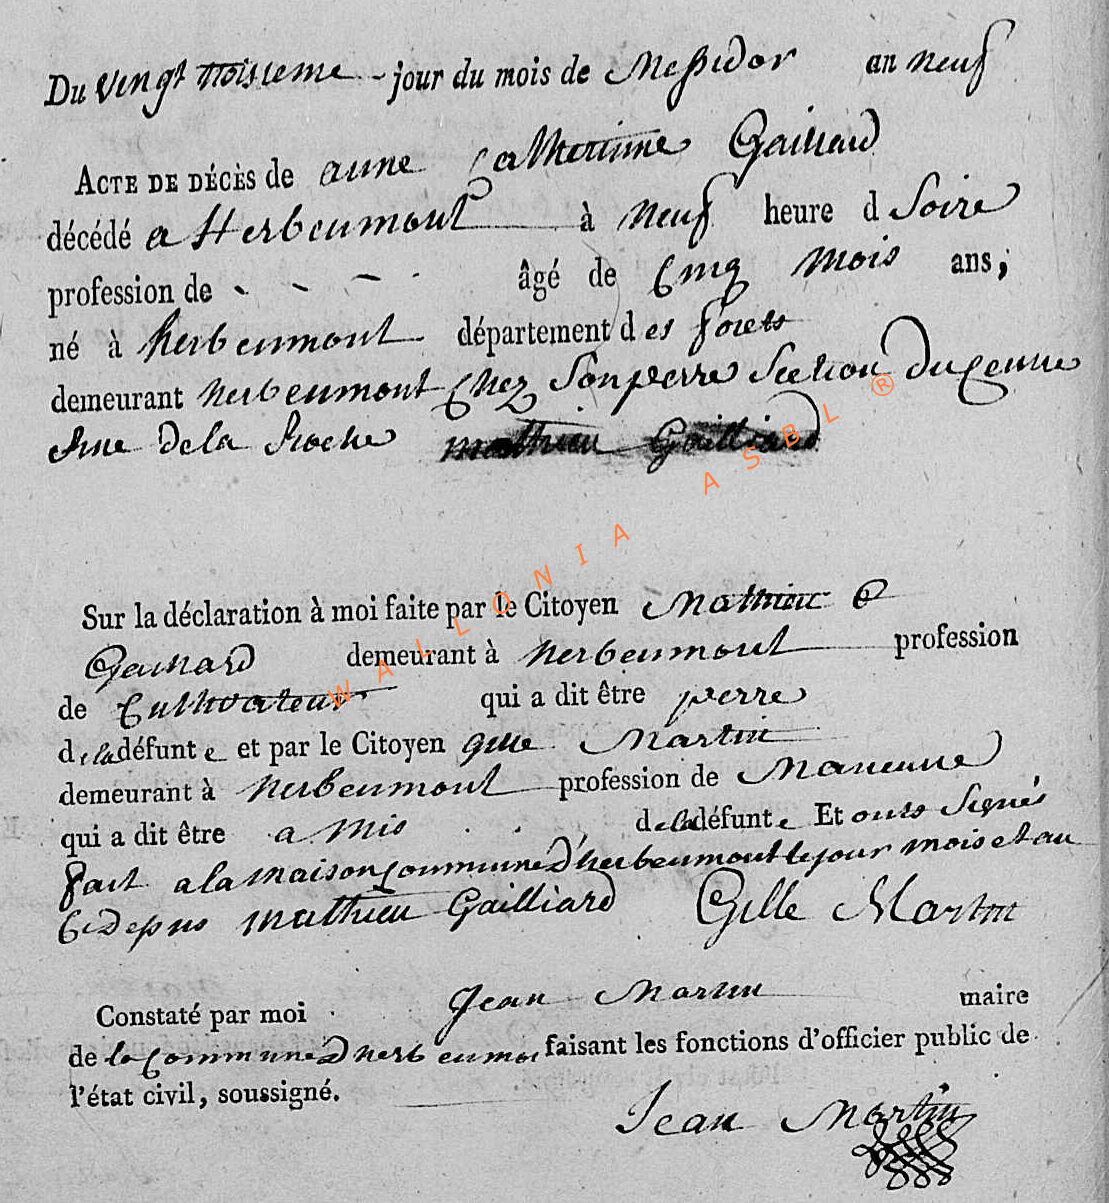 Du vingt troisieme jour du mois de Messidor an neuf
ACTE DE DÉCÈS de anne Catherinne Gaillard
décédé a Herbeumont à neuf heure d Soire
profession de - - - âgé de Cinq mois ans,
né à herbeumont département des forets
demeurant herbeumont Chez Son perre Section
Rue de la Roche mathieu Gailliard
Sur la déclaration à moi faite par le Citoyen Mathieu
Gaillard demeurant à herbeumont profession
de Cultivateur qui a dit être perre
de la défunte et par le Citoyen Gille Martin
demeurant à herbeumont profession de
qui a dit être amis de la défunte Et onts Signés
fait a la maison Commune D'herbeumont le jour mois et an
Ci Depus mathieu Gailliard Gille Martin
Constaté par moi Jean Martin maire
de la Commune D'herbeumon faisant les fonctions d'officier public de
l'état civil, soussigné.
Jean Martin
WALLONIA ASBL ®